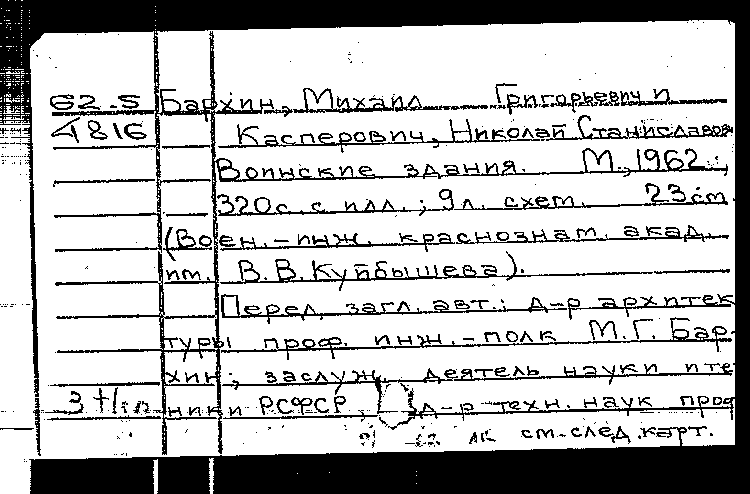 62.5 Бархин, Михаил Григорьевич и
4816 Касперович, Николай Станиславов
Воинские здания. М., 1962.
320с. с илл.; 9л. схем. 23см.
(Воен.-инж. краснознам. акад.
им. В.В.Куйбышева).
Перед загл. авт.: д-р архитек
туры проф. инж.-полк М.Г. Бар-
хин; заслуж. деятель науки и те
ники РСФСР, д-р техн. наук проф
см. след. карт.